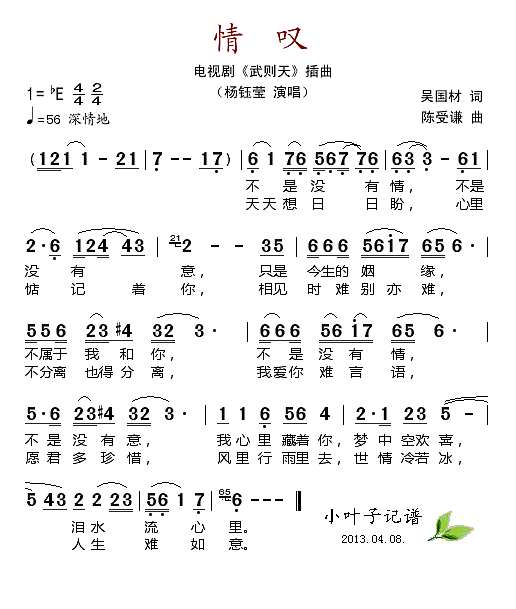 情 叹
电视剧《武则天》插曲
（杨钰莹 演唱）
1=♭E 4/4 2/4
♩=56 深情地
吴国材 词
陈受谦 曲
(121 1 - 21 | 7 - - 17) | 6 1 76 567 76 | 63 3 - 61 |
不 是 没 有 情，不是
天 天 想 日 日 盼，心里
2· 6 124 43 | 21 2 - - 35 | 666 5617 65 6· |
没 有 意，只是 今生的 姻 缘，
惦 记 着 你，相见 时 难 别 亦 难，
556 23 #4 32 3· | 666 56 17 65 6· |
不属于 我 和 你，不 是 没 有 情，
不分离 也得 分 离，我爱你 难 言 语，
5· 6 23#4 32 3· | 1 1 6 56 1 | 2· 1 23 5 |
不 是 没 有 意，我 心 里 藏着 你，梦 中 空欢 喜，
愿 君 多 珍 惜，风 里 行 雨里 去，世 情 冷若 冰，
5 43 2 2 23 | 56 6 1 7 | 65 6 - - - ‖
泪 水 流 心 里。
人 生 难 如 意。
小叶子记谱
2013.04.08.